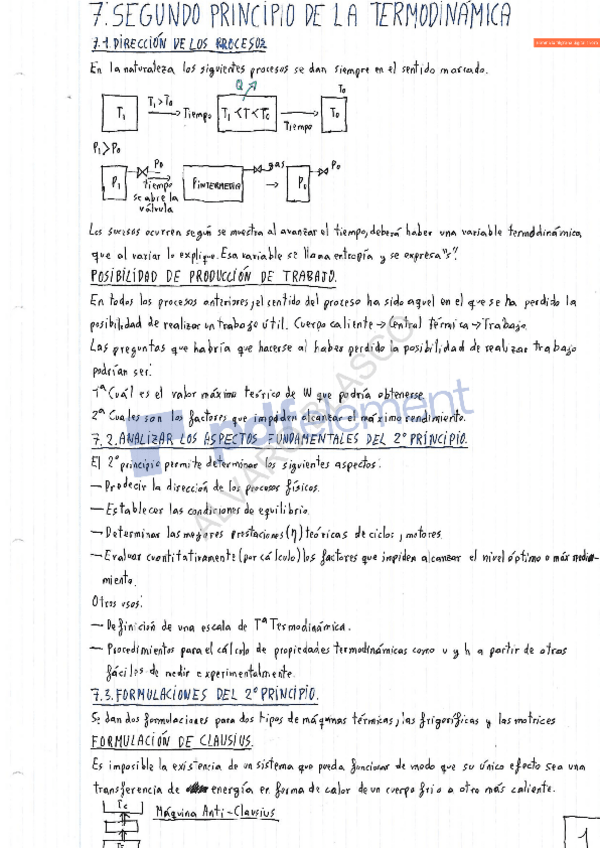 7. SEGUNDO PRINCIPIO DE LA TERMODINÁMICA
7.1 DIRECCIÓN DE LOS PROCESOS
En la naturaleza los siguientes procesos se dan siempre en el sentido marcado.
Q T0
T1 T1>T0 Tiempo T1<T<TC Tiempo T0
P1>P0
P1 P0 Tiempo Pintermedia gas P0 P0
se abre la
válvula
Los sucesos ocurren según se muestra al avanzar el tiempo, deberá haber una variable termodinámica
que al variar lo explique. Esa variable se llama entropía y se expresa "s".
POSIBILIDAD DE PRODUCCIÓN DE TRABAJO.
En todos los procesos anteriores, el sentido del proceso ha sido aquel en el que se ha perdido la
posibilidad de realizar un trabajo útil. Cuerpo caliente → Central térmica → Trabajo
Las preguntas que habría que hacerse al haber perdido la posibilidad de realizar trabajo
podrían ser:
1ª Cuál es el valor máximo teórico de W que podría obtenerse
2ª Cuales son los factores que impiden alcanzar el máximo rendimiento.
7.2. ANALIZAR LOS ASPECTOS FUNDAMENTALES DEL 2º PRINCIPIO.
El 2º principio permite determinar los siguientes aspectos:
— Predecir la dirección de los procesos físicos.
— Establecer las condiciones de equilibrio.
— Determinar las mejores prestaciones (η) teóricas de ciclos, motores.
— Evaluar cuantitativamente (por cálculo) los factores que impiden alcanzar el nivel óptimo o máx rendi-
miento.
Otros usos:
— Definición de una escala de Tª Termodinámica.
— Procedimientos para el cálculo de propiedades termodinámicas como u y h a partir de otras
fáciles de medir experimentalmente.
7.3. FORMULACIONES DEL 2º PRINCIPIO.
Se dan dos formulaciones para dos tipos de máquinas térmicas, las frigoríficas y las motrices
FORMULACIÓN DE CLAUSIUS.
Es imposible la existencia de un sistema que pueda funcionar de modo que su único efecto sea una
transferencia de energía en forma de calor de un cuerpo frío a otro más caliente.
TC Máquina Anti-Clausius
1
pdfelement
ALVARO BLASCO